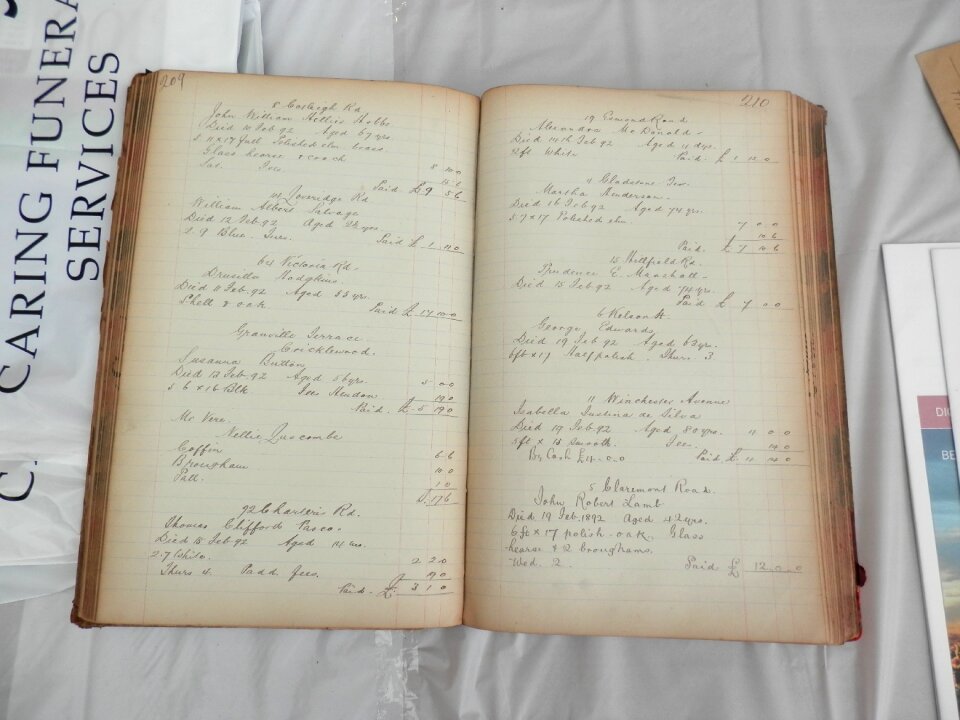 CARING FUNERA
SERVICES
C.
209
8 Rd
John William Hollis Hobbs
Died 10 Feb 92 Aged 67 yrs.
5 11 x 17 full Polished elm brass.
Glass hearse & coach 8 10 0
Sat. Fees. 15 6
Paid £ 9 5 6
Loveridge Rd
William Albert Salvage
Died 12 Feb. 92 Aged
2. 9 Blue. Fees. Paid £ 1 11 0
64 Victoria Rd.
Drusilla Hodgkins
Died 11 Feb. 92 Aged 55 yrs.
Shell & oak Paid £ 17 10 0
Granville Terrace
Cricklewood.
Susanna Button
Died 13 Feb. 92 Aged 56 yrs. 5 0 0
5 6 x 16 Blk Fees Hendon 19 0
Paid. £ 5 19 0
Mr Vere.
Nellie Luscombe
Coffin 6 6
Brougham 10 0
Pall. 1 0
17 6
92 Charteris Rd.
Thomas Clifford Pasco.
Died 15 Feb 92 Aged 14
2.7 White. 2 2 0
Thurs 4. Padd. fees. 19 0
Paid. £ 3 1 0
210
19 Esmond Road
Alexandra McDonald
Died 14th Feb 92 Aged 11 dys.
2ft White Paid. £ 1 12 0
4 Gladstone Ter.
Martha Henderson.
Died 16 Feb 92 Aged 74 yrs.
5 7 x 17 Polished elm 7 0 0
10 6
Paid. £ 7 10 6
15 Hillfield Rd.
Prudence E. Marshall
Died 15 Feb 92 Aged 74 yrs.
Paid £ 7 0 0
6 Nelson St
George Edwards
Died 19 Feb 92 Aged 63 yrs.
6ft x 17 Half polish. Thurs 3
11 Winchester Avenue
Isabella Justina de Silva
Died 19 Feb. 92 Aged 80 yrs. 4 0 0
5ft x 15 smooth. Fees. 14 0
By Cash £4.0.0 Paid £ 4 14 0
5 Claremont Road.
John Robert Lamb
Died 19 Feb. 1892 Aged 42 yrs.
6ft x 17 polish oak. Glass
hearse & 2 broughams.
Wed. 2. Paid £ 12 0 0
DIG
BE